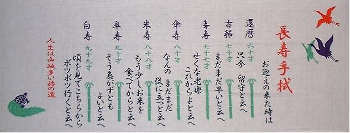 長寿手拭
お迎えの来た時は
還暦
六十才
只今留守と云へ
古稀
七十才
まだまだ早いと云へ
喜寿
七十七才
せくな老楽
これからよと云へ
傘寿
八十才
なんのまだまだ
役に立つと云へ
米寿
八十八才
もう少しお米を
食べてからと云へ
卒寿
九十才
そう急がずとも
よいと云へ
白寿
九十九才
頃を見てこちらから
ボツボツ行くと云へ
人生は山坂多い旅の道